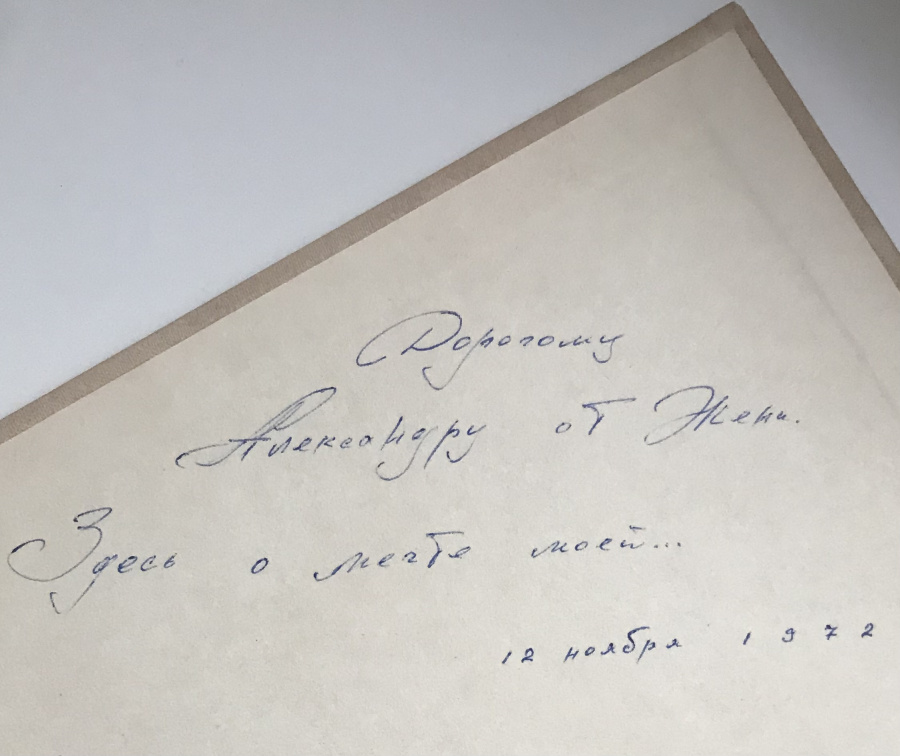 Дорогому
Александру от Жени.
Здесь о мечте моей...
12 ноября 1972